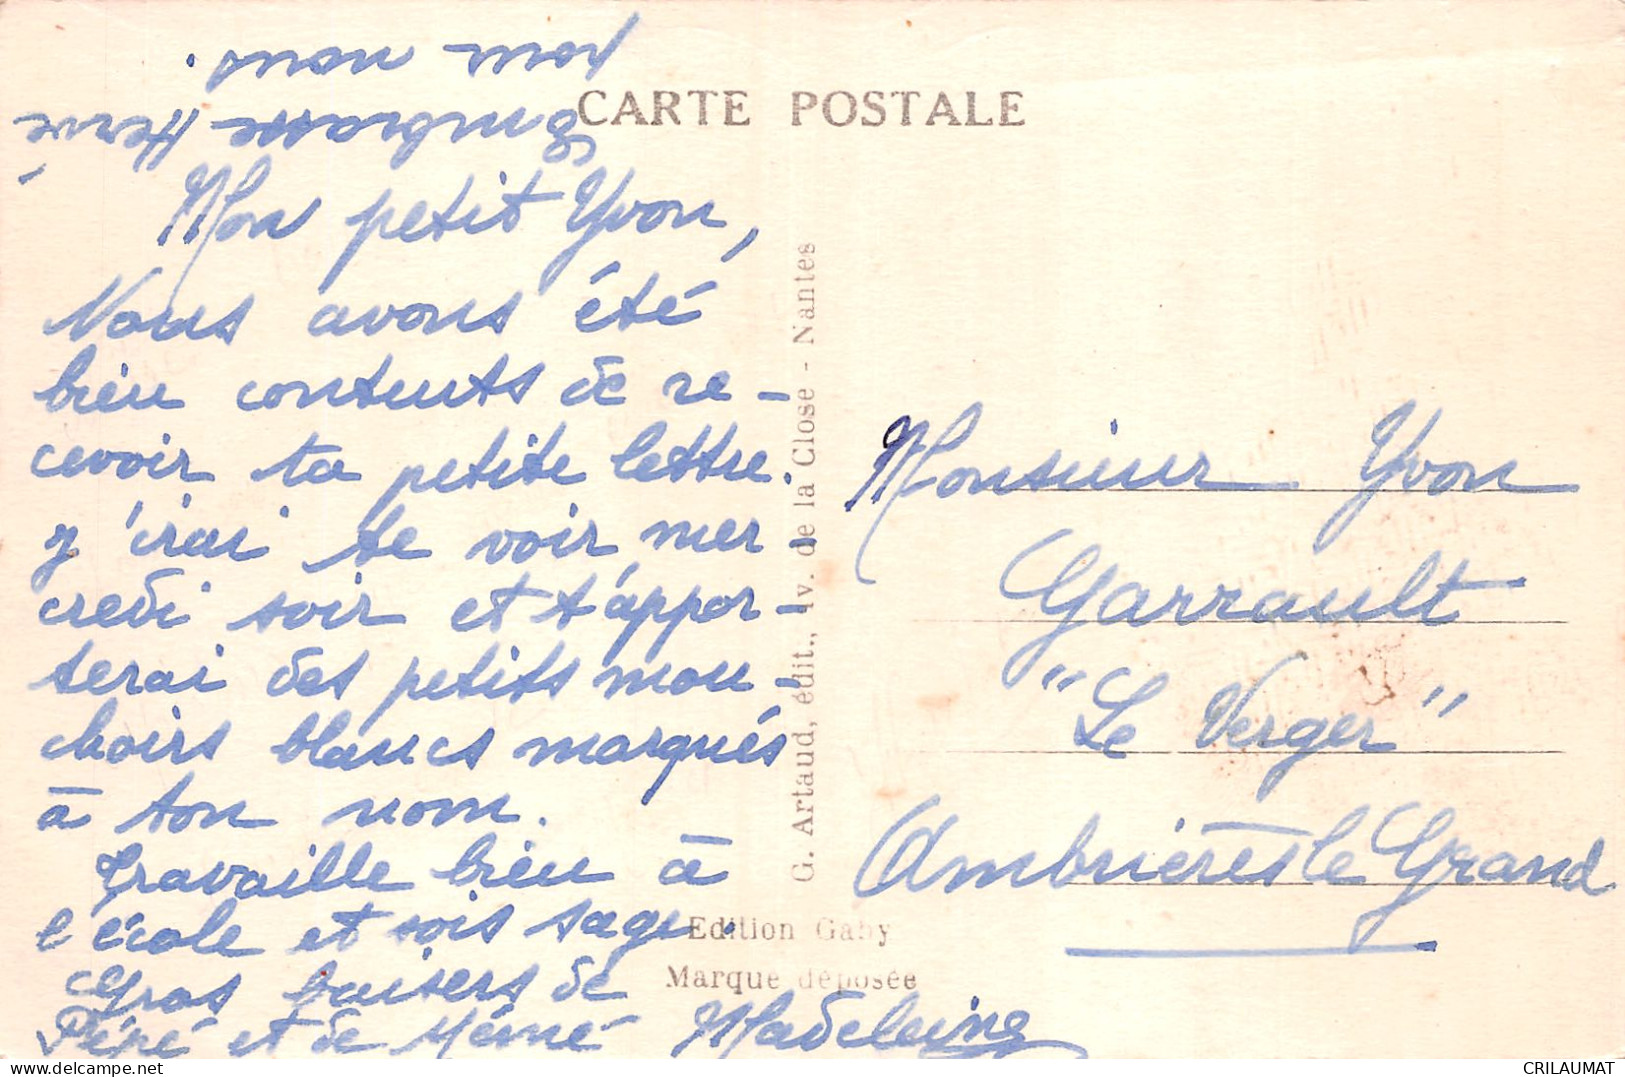 CARTE POSTALE
Mon petit Yvon,
Nous avons été
bien contents de re-
cevoir ta petite lettre.
J'irai te voir mer-
credi soir et t'appor-
terai des petits mou-
choirs blancs marqués
à ton nom.
Travaille bien à
l'école et sois sage.
Gros baisers de
Pépé et de Mémé Madeleine
Embrasse Hervé
pour nous.
G. Artaud, édit., av. de la Close - Nantes
Edition Gaby
Marque déposée
Monsieur Yvon
Garrault
"Le Verger"
Ambrières le Grand
CRILAUMAT